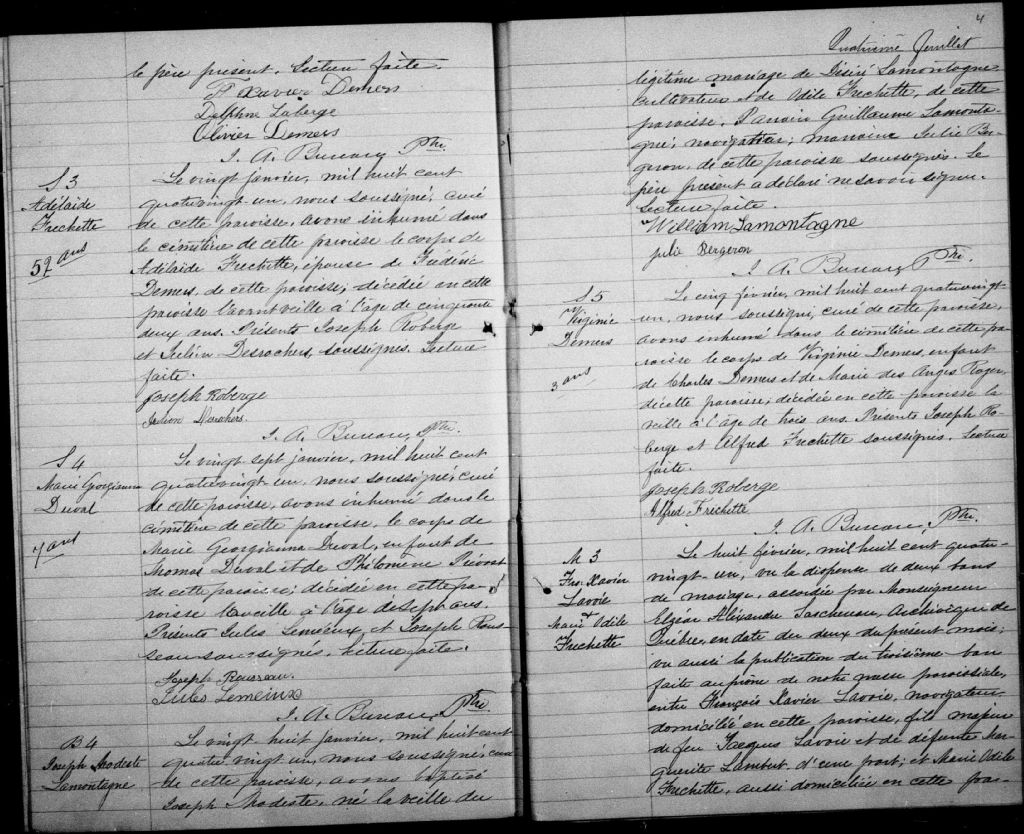 le père présent. Lecture faite.
F. Xavier Demers
Delphine Laberge
Olivier Demers
J. A. Bureau, Ptre.
S 3
Adélaide
Frechette
52 ans
Le vingt janvier, mil huit cent
quatrevingt un, nous soussigné, curé
de cette paroisse, avons inhumé dans
le cimetière de cette paroisse le corps de
Adélaide Frechette, épouse de Frédéric
Demers, de cette paroisse; décédée en cette
paroisse l'avant veille à l'age de cinquante
deux ans. Présents Joseph Roberge
et Julien Desrochers, soussignés. Lecture
faite.
Joseph Roberge
Julien Derochers
J. A. Bureau, Ptre.
S 4
Marie Georgianna
Duval
7 ans
Le vingt-sept janvier, mil huit cent
quatrevingt un, nous soussigné, curé
de cette paroisse, avons inhumé dans le
cimetière de cette paroisse, le corps de
Marie Georgianna Duval, enfant de
Thomas Duval et de Philomène Prévost
de cette paroisse; décédée en cette pa-
roisse la veille à l'age de sept ans.
Présents Jules Lemieux, et Joseph Rous-
seau soussignés. Lecture faite.
Joseph Rousseau.
Jules Lemeiux
J. A. Bureau, Ptre.
B 4
Joseph Modeste
Lamontagne
Le vingt huit janvier, mil huit cent
quatre vingt un, nous soussigné, curé
de cette paroisse, avons baptisé
Joseph Modeste, né la veille du
4
Quatrième feuillet
légitime mariage de Désiré Lamontagne
cultivateur et de Odile Frechette, de cette
paroisse. Parrain Guillaume Lamonta-
gne, navigateur; marraine Julie Ber-
geron, de cette paroisse soussignés. Le
père présent a déclaré ne savoir signer.
Lecture faite.
William Lamontagne
julie Bergeron
J. A. Bureau, Ptre.
S 5
Virginie
Demers
3 ans
Le cinq février, mil huit cent quatrevingt-
un, nous soussigné, curé de cette paroisse,
avons inhumé dans le cimetière de cette pa-
roisse le corps de Virginie Demers, enfant
de Charles Demers et de Marie des Anges Roger,
de cette paroisse; décédée en cette paroisse la
veille à l'âge de trois ans. Présents Joseph Ro-
berge et Alfred Frechette soussignés. Lecture
faite.
Joseph Roberge
Alfred Frechette
J. A. Bureau, Ptre.
M 3
Frs. Xavier
Lavoie
+
Marie Odile
Frechette
Le huit février, mil huit cent quatre-
vingt-un, vu la dispense de deux bans
de mariage, accordée par Monseigneur
Elzéar Alexandre Taschereau, Archevêque de
Québec, en date du deux du présent mois;
vu aussi la publication du troisième ban
faite au prône de notre messe paroissiale,
entre François Xavier Lavoie, navigateur
domicilié en cette paroisse, fils majeur
de feu Jacques Lavoie et de défunte Mar-
guerite Lambert d'une part; et Marie Odile
Frechette, aussi domiciliée en cette pa-